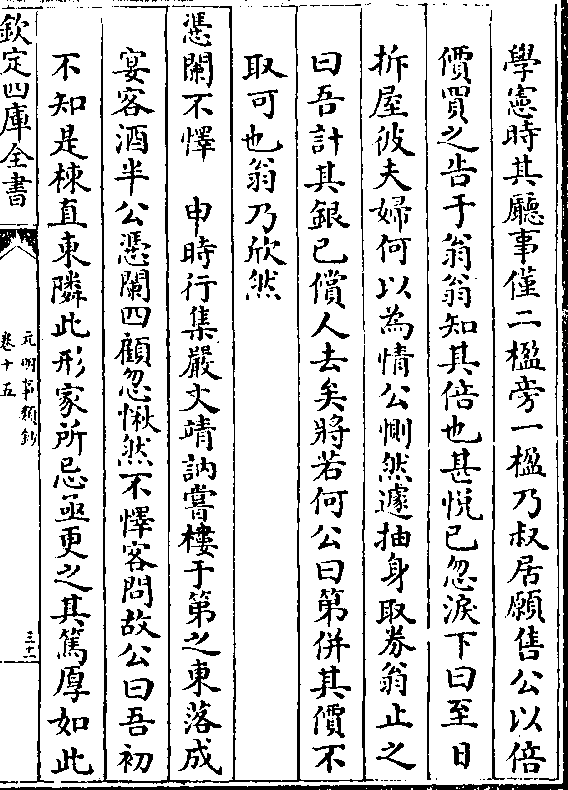 學憲時其廳事僅二楹旁一楹乃叔居願售公以倍
價買之告于翁翁知其倍也甚悦已忽淚下曰至日
拆屋彼夫婦何以為情公惻然遽抽身取券翁止之
曰吾計其銀已償人去矣將若何公曰第併其價不
取可也翁乃欣然
憑闌不懌　申時行集嚴文靖訥嘗樓于第之東落成
宴客酒半公憑闌四顧忽愀然不懌客問故公曰吾初
不知是棟直東隣此形家所忌亟更之其篤厚如此
欽定四庫全書
元明事類鈔
卷十五
三十二